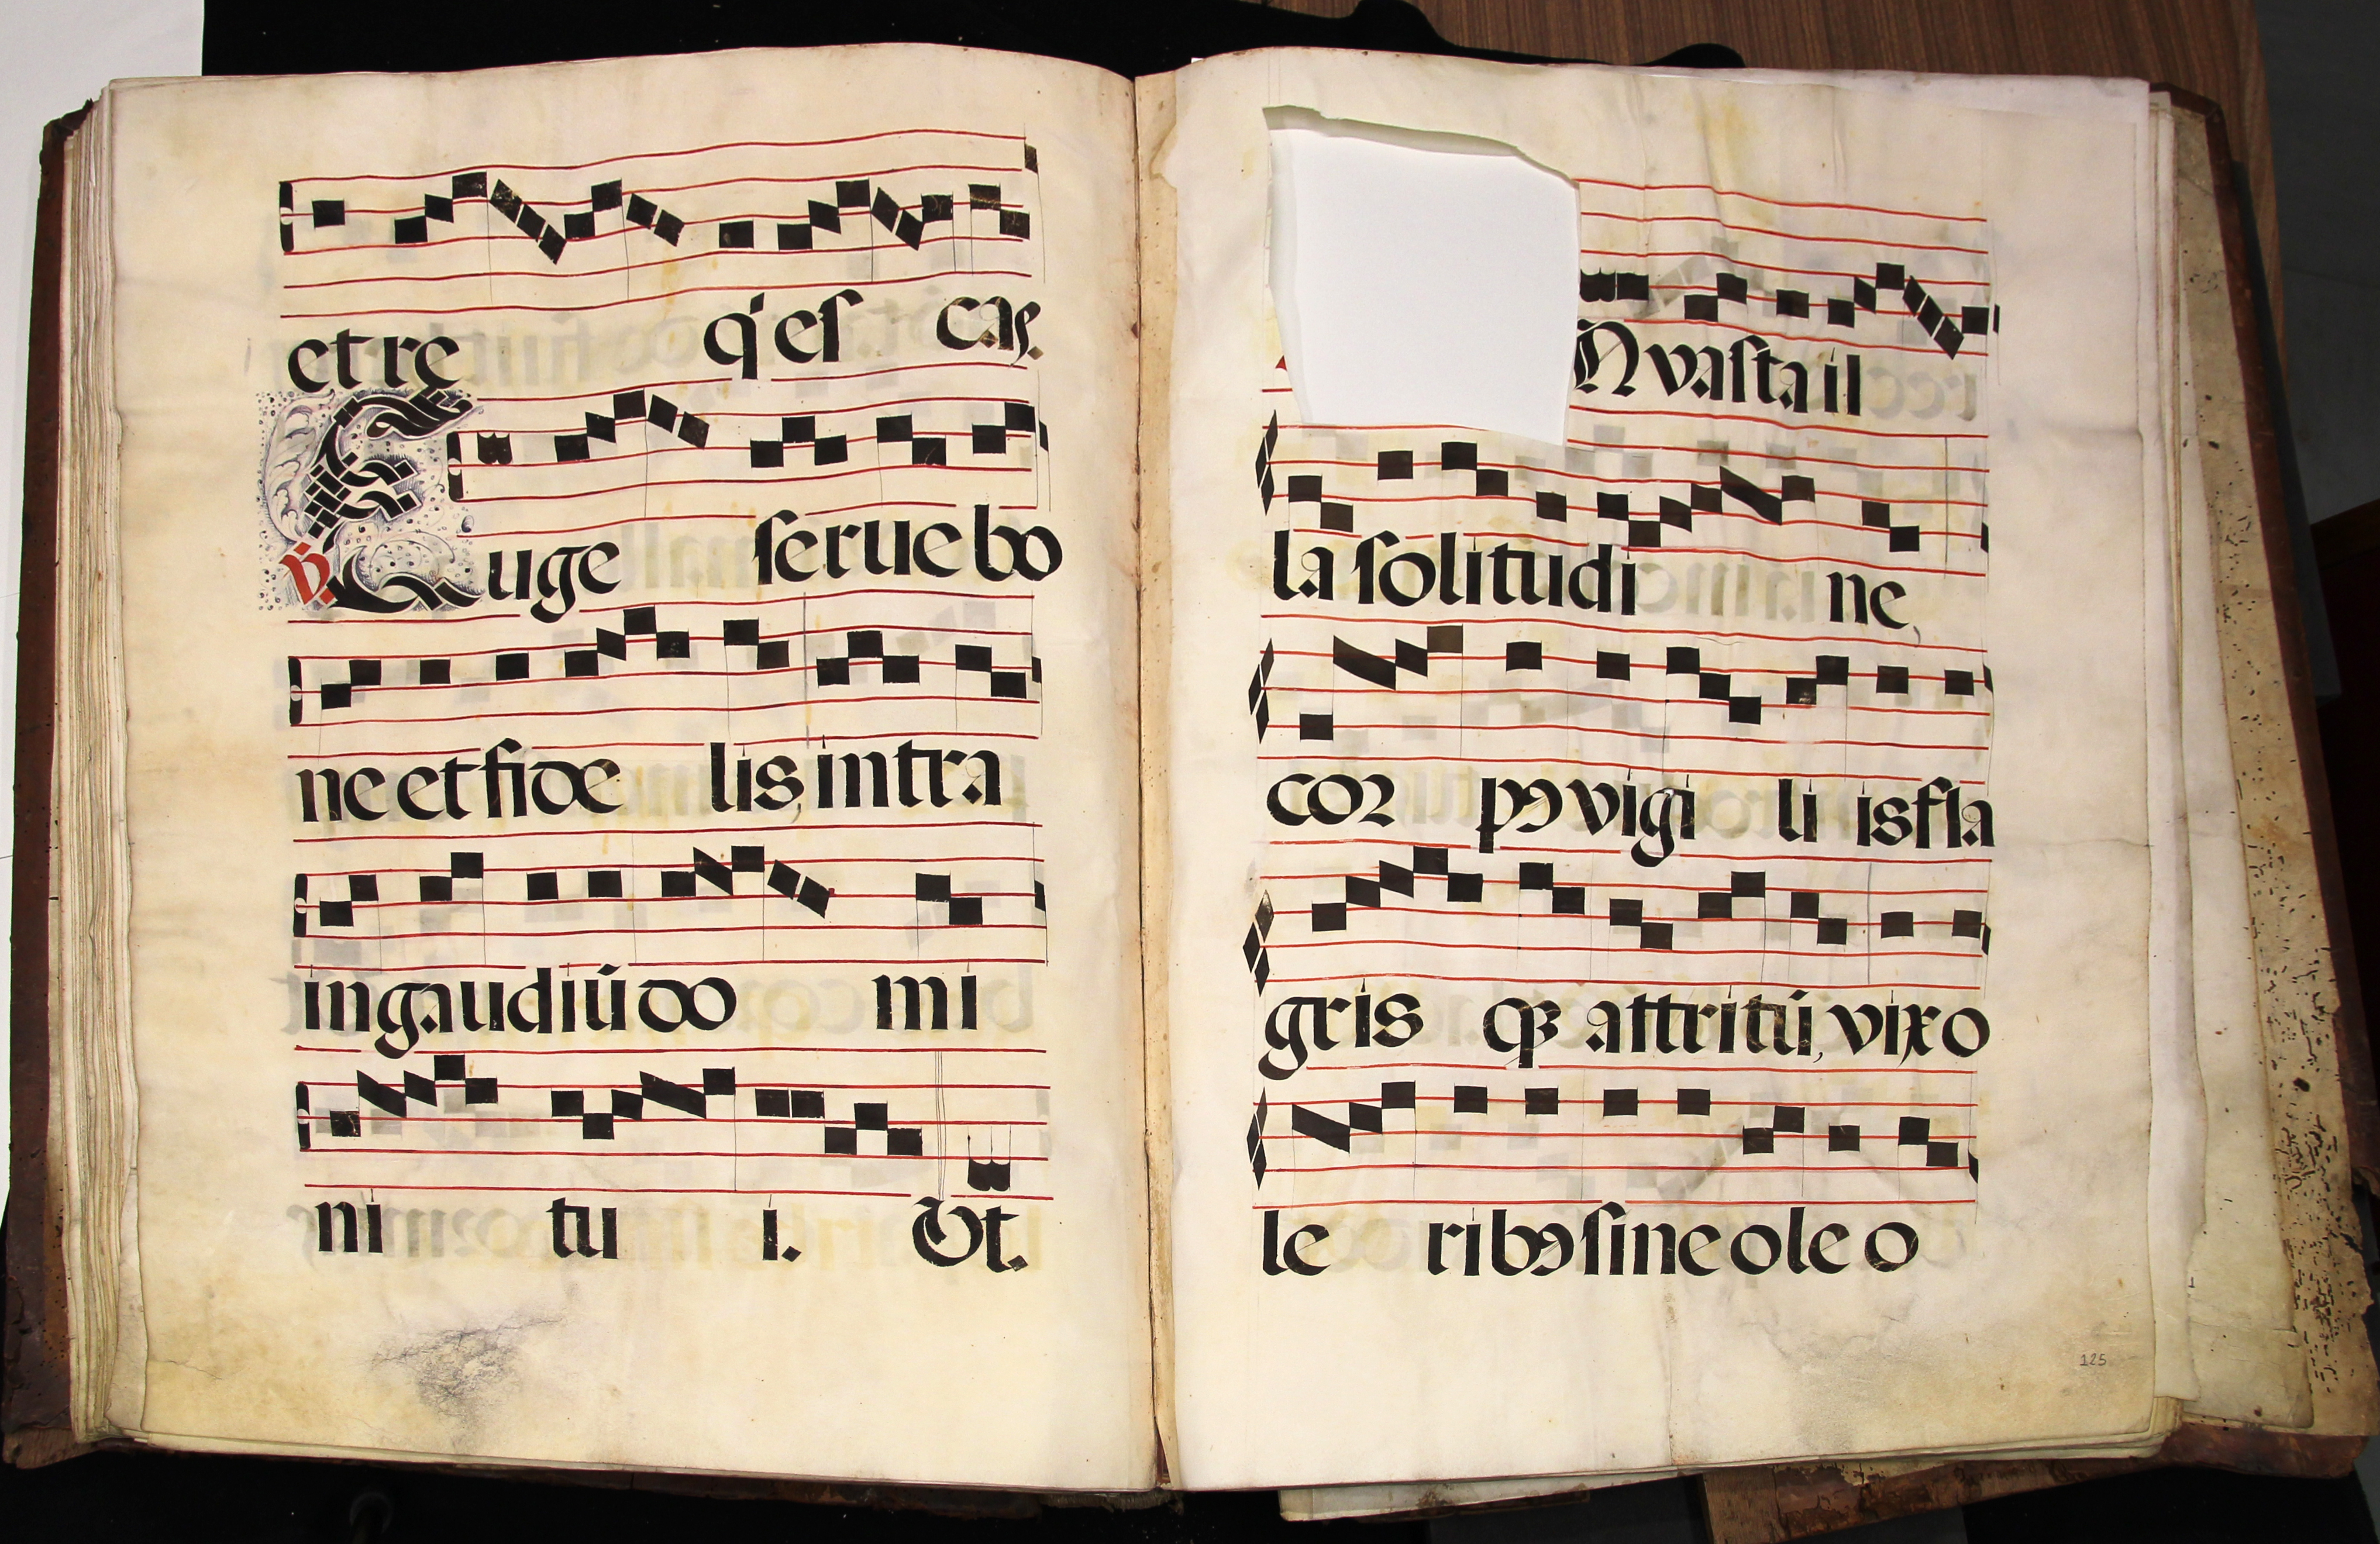 et re q̇ eſ cas.
℣. Euge ſerue bo
ne et fide lis, intra
in gaudiū do mi
ni tu i. Vt.
N vasta il
la ſolitudi ne,
cor pꝯ vigi li is fla
gris qꝫ attritū, vix o
le ribꝯ ſine oleo
125